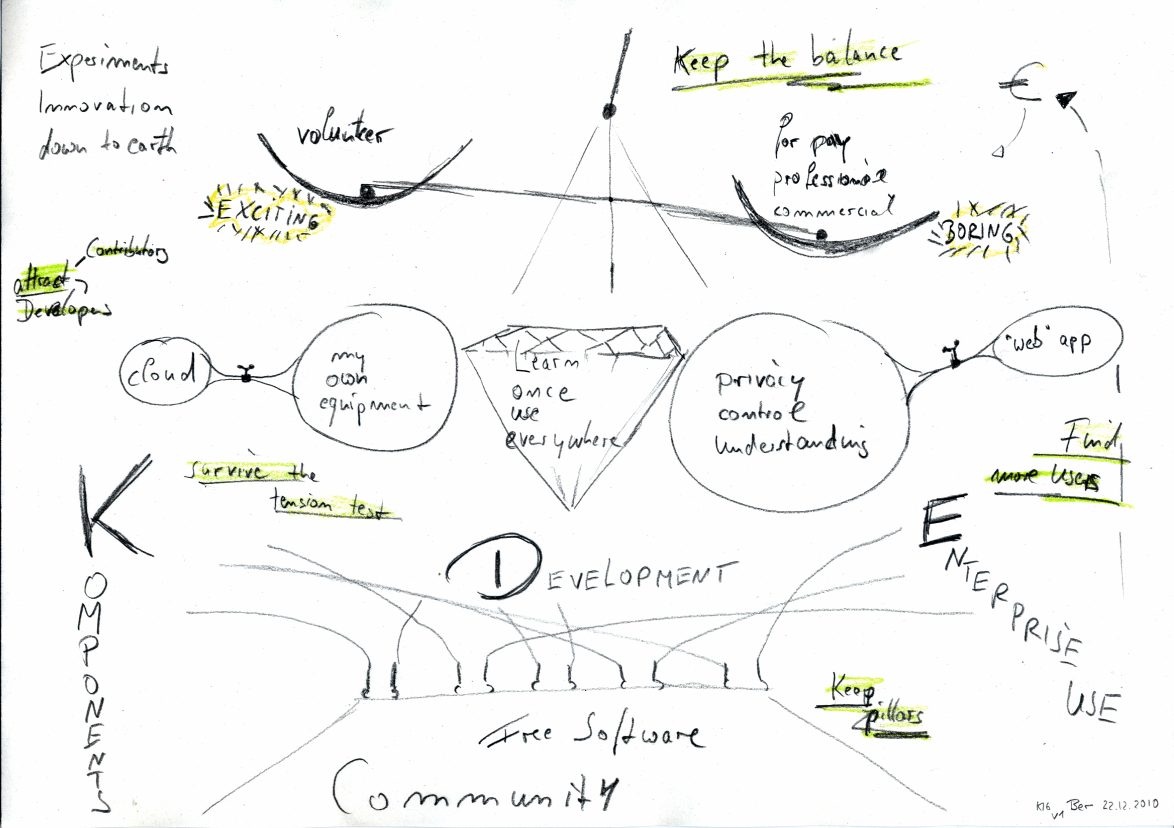 Experiments
Innovation
down to earth
volunteer
EXCITING
Keep the balance
€
for pay
professional
commercial
BORING
Contributors
attract
Developers
cloud
my
own
equipment
Learn
once
use
everywhere
privacy
control
understanding
"web" app
Find
more Users
survive the
tension test
KOMPONENTS
DEVELOPMENT
ENTERPRISE
USE
Keep
pillars
Free Software
Community
v1 Ber 22.12.2010